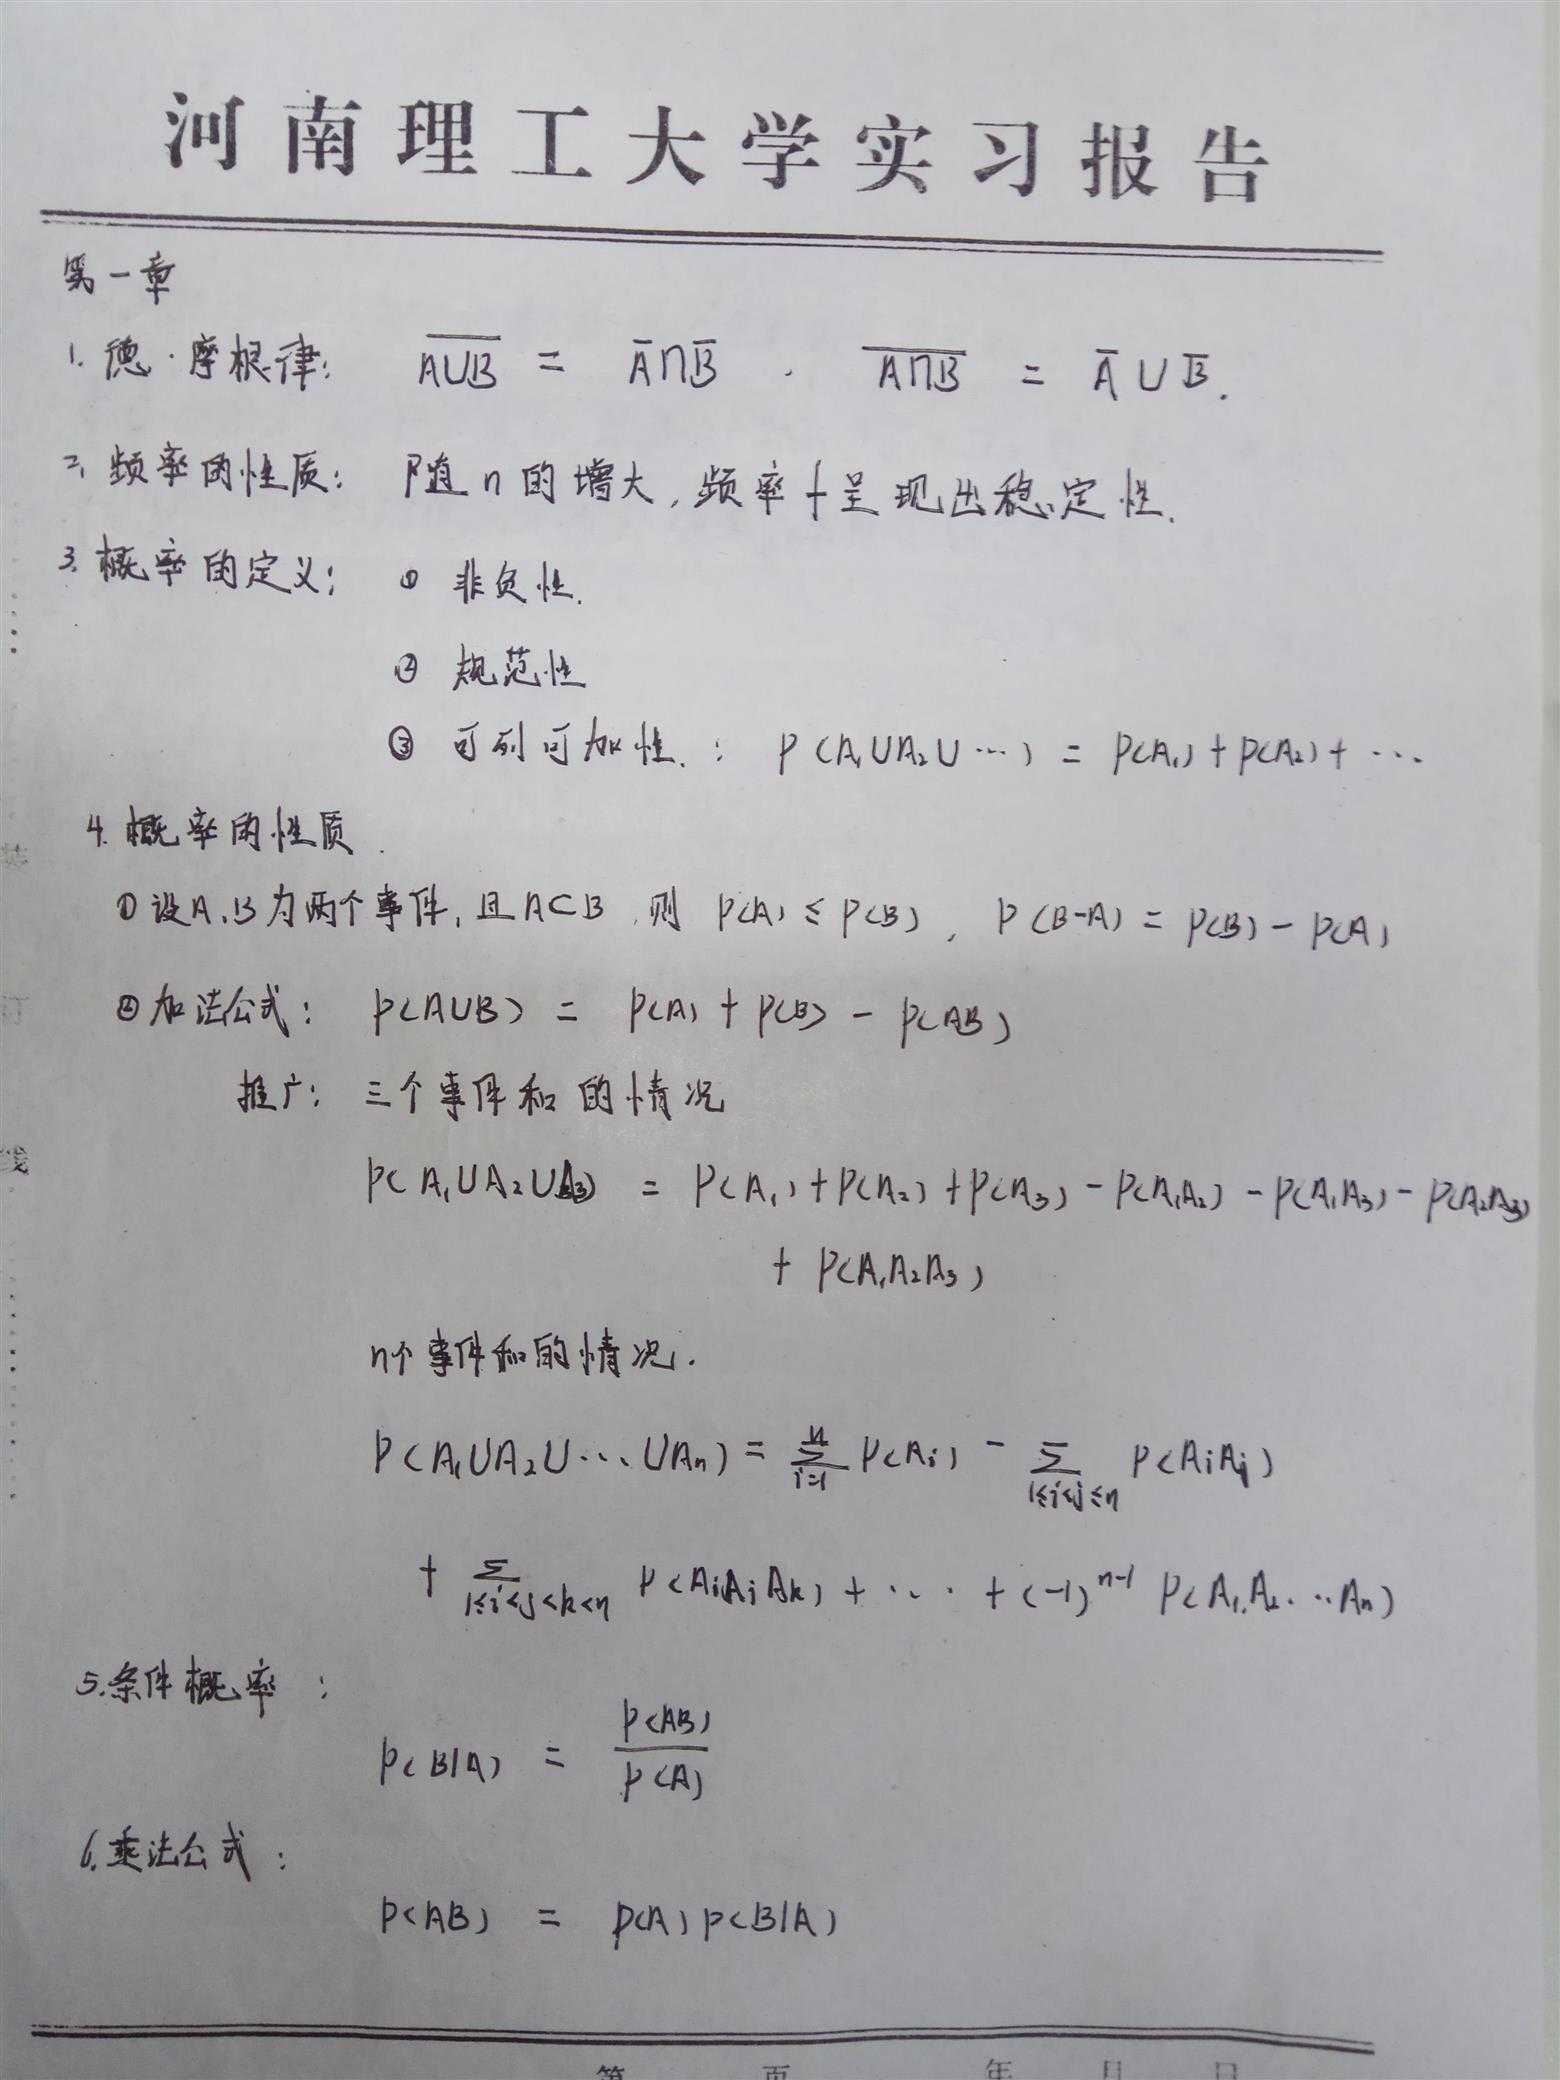 河南理工大学实习报告
第一章
1. 德·摩根律: \overline{A∪B} = \overline{A}∩\overline{B} . \overline{A∩B} = \overline{A}∪\overline{B}.
2. 频率的性质: 随n的增大,频率f呈现出稳定性.
3. 概率的定义: ① 非负性.
② 规范性
③ 可列可加性.: P(A₁∪A₂∪…) = P(A₁)+P(A₂)+…
4. 概率的性质.
① 设A,B为两个事件,且A⊂B,则 P(A)≤P(B), P(B-A)=P(B)-P(A)
② 加法公式: P(A∪B) = P(A)+P(B)-P(AB)
推广: 三个事件和的情况
P(A₁∪A₂∪A₃) = P(A₁)+P(A₂)+P(A₃)-P(A₁A₂)-P(A₁A₃)-P(A₂A₃)
+ P(A₁A₂A₃)
n个事件和的情况.
P(A₁∪A₂∪…∪Aₙ) = \sum_{i=1}^{n} P(Aᵢ) - \sum_{1≤i<j≤n} P(AᵢAⱼ)
+ \sum_{1≤i<j<k<n} P(AᵢAⱼAₖ)+…+(-1)^{n-1} P(A₁A₂…Aₙ)
5. 条件概率:
P(B|A) = \frac{P(AB)}{P(A)}
6. 乘法公式:
P(AB) = P(A)P(B|A)
装
订
线
第 页 年 月 日